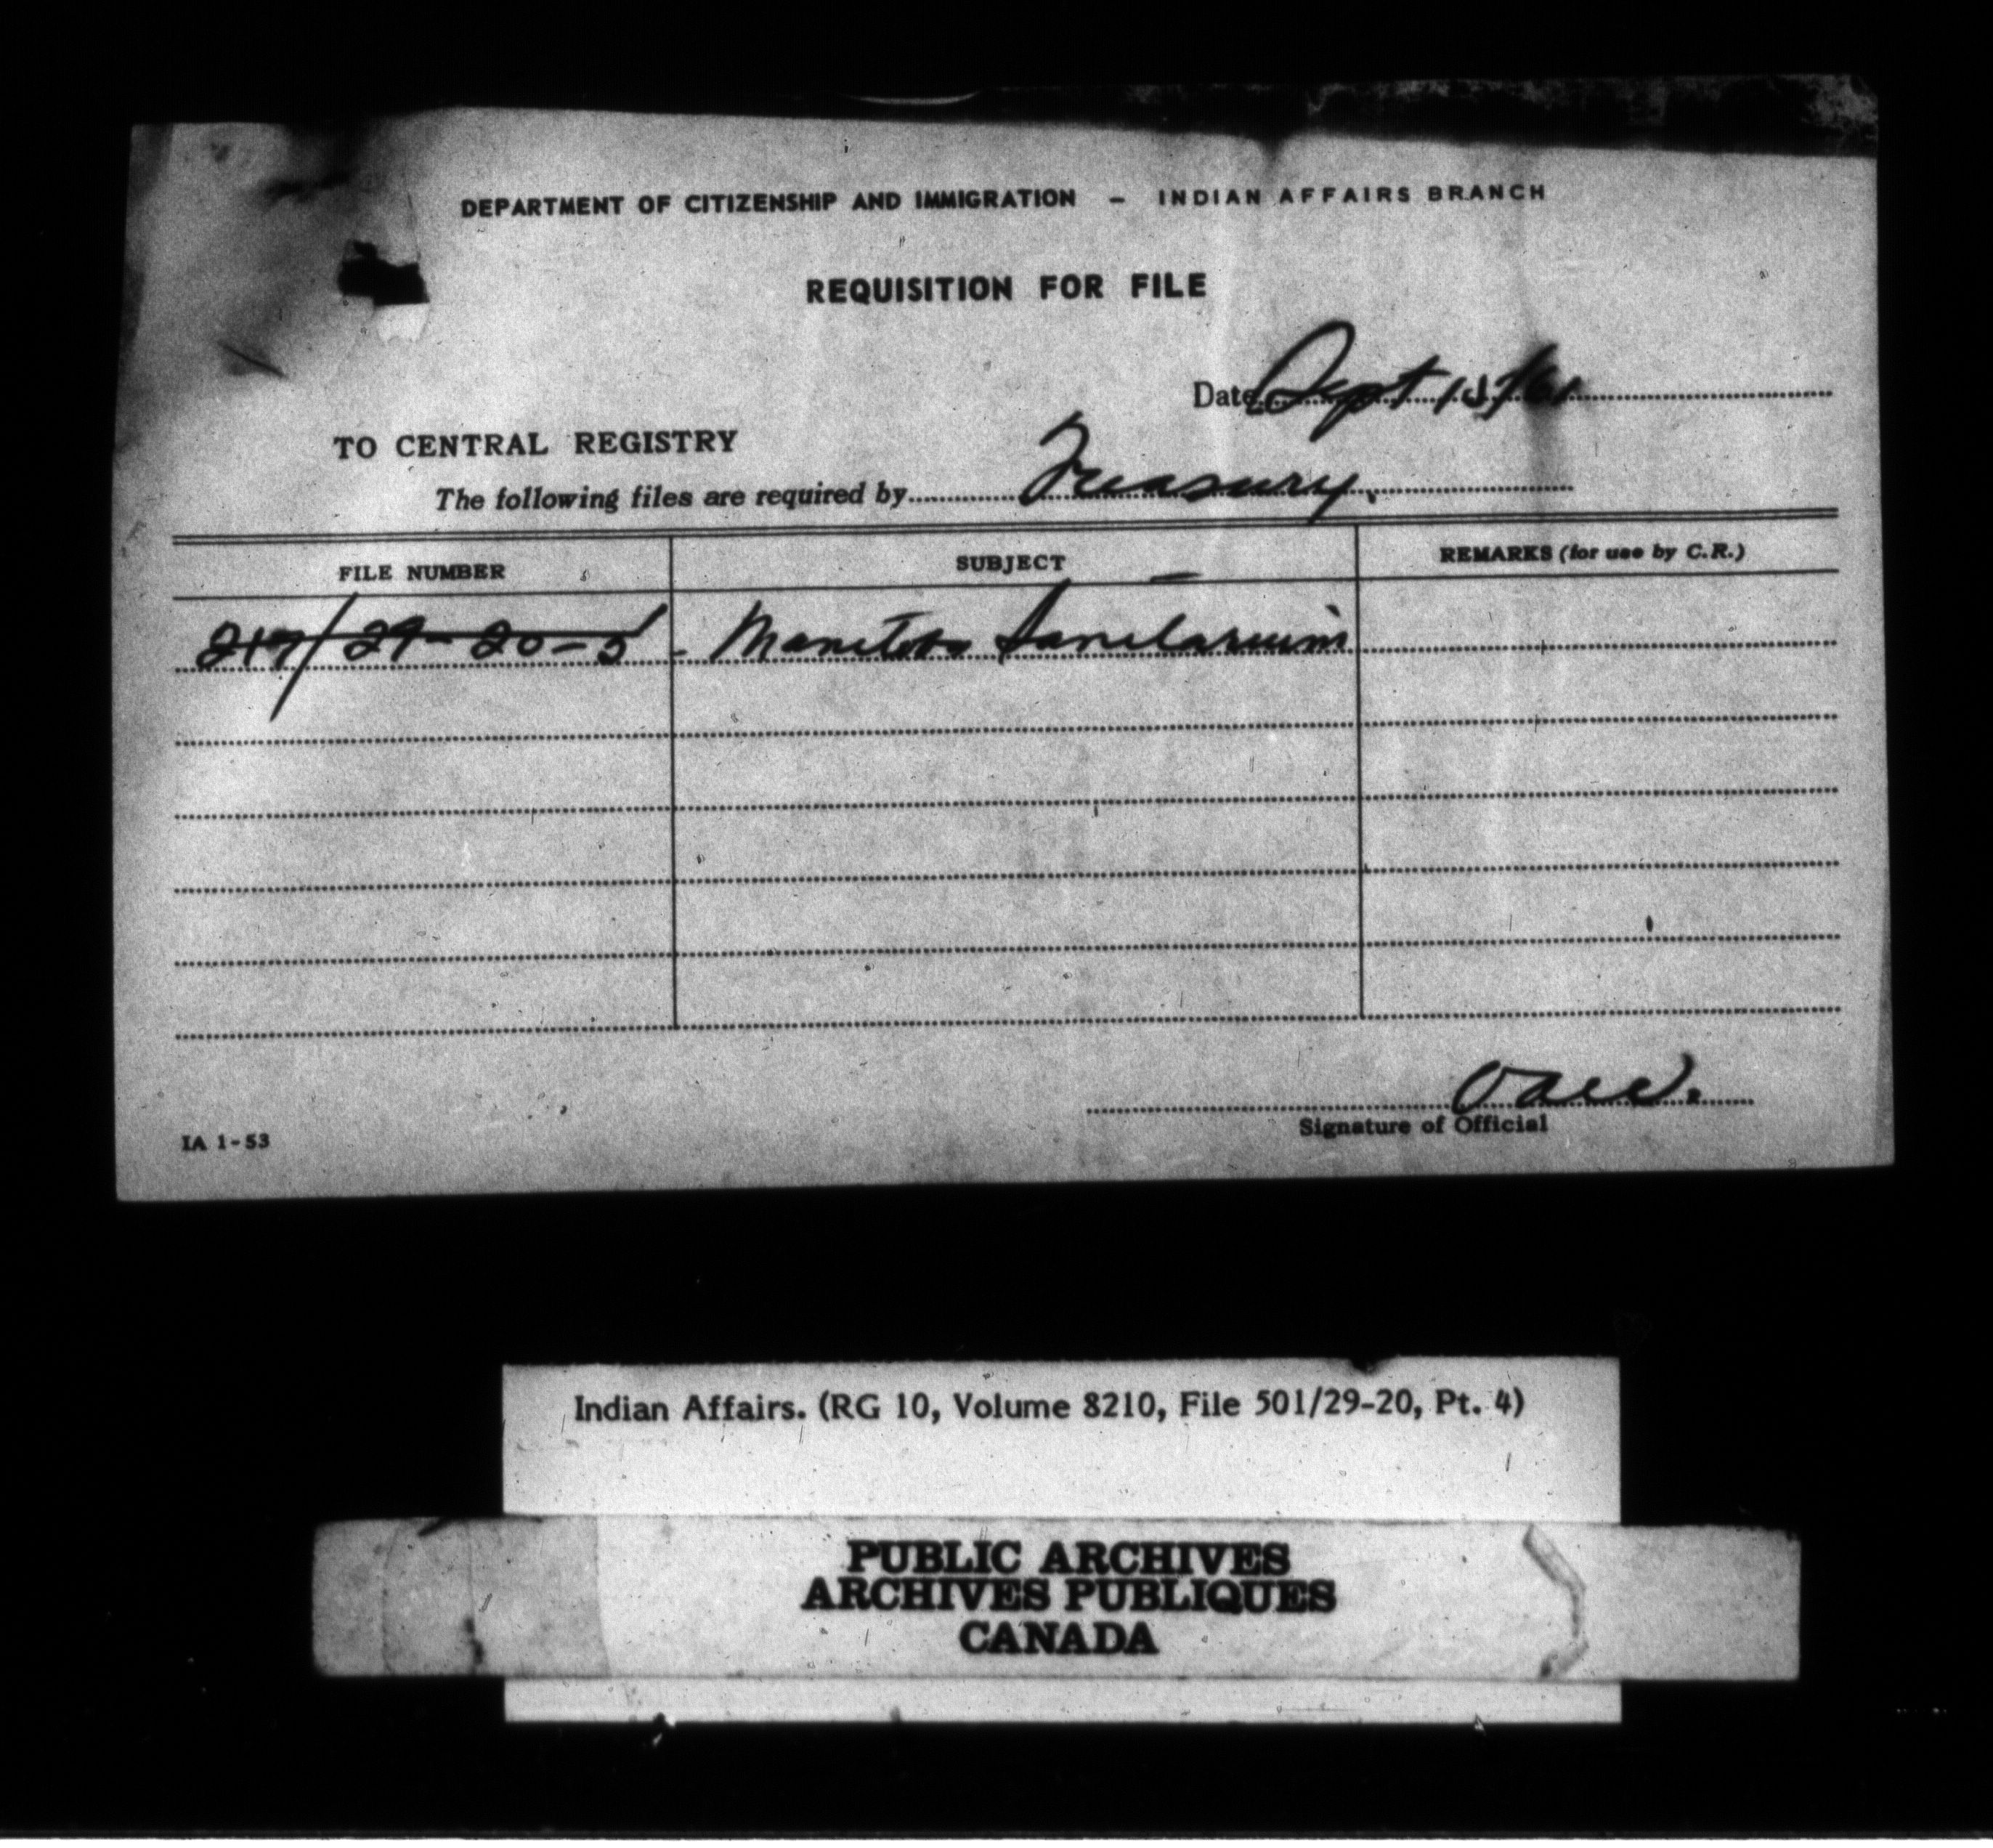 DEPARTMENT OF CITIZENSHIP AND IMMIGRATION – INDIAN AFFAIRS BRANCH
REQUISITION FOR FILE
Date Sept 15/61
TO CENTRAL REGISTRY
The following files are required by Treasury.
FILE NUMBER SUBJECT REMARKS (for use by C.R.)
217/29-20-5 - Manitoba Sanitarium
Signature of Official
IA 1-53
Indian Affairs. (RG 10, Volume 8210, File 501/29-20, Pt. 4)
PUBLIC ARCHIVES
ARCHIVES PUBLIQUES
CANADA